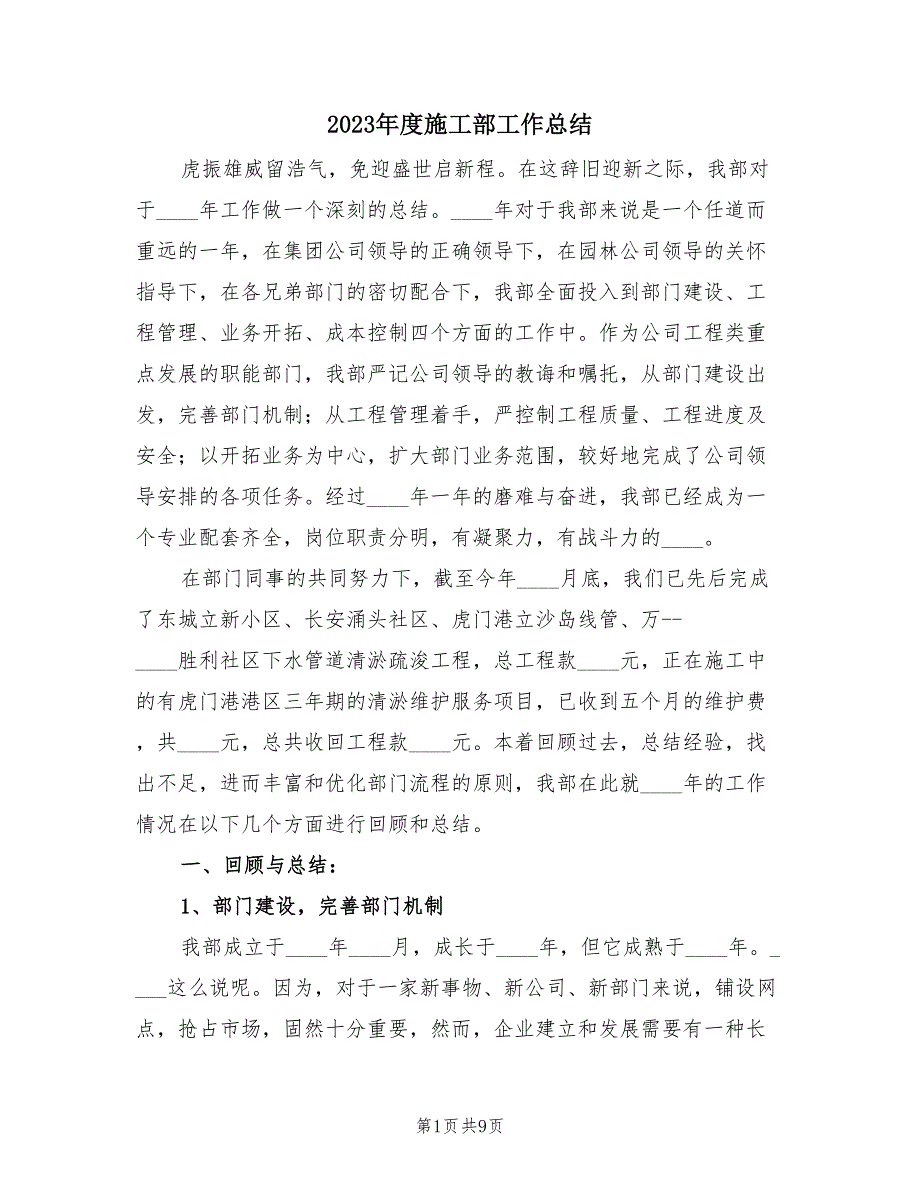 2023年度施工部工作总结
虎振雄威留浩气，免迎盛世启新程。在这辞旧迎新之际，我部对
于____年工作做一个深刻的总结。____年对于我部来说是一个任道而
重远的一年，在集团公司领导的正确领导下，在园林公司领导的关怀
指导下，在各兄弟部门的密切配合下，我部全面投入到部门建设、工
程管理、业务开拓、成本控制四个方面的工作中。作为公司工程类重
点发展的职能部门，我部严记公司领导的教诲和嘱托，从部门建设出
发，完善部门机制；从工程管理着手，严控制工程质量、工程进度及
安全；以开拓业务为中心，扩大部门业务范围，较好地完成了公司领
导安排的各项任务。经过____年一年的磨难与奋进，我部已经成为一
个专业配套齐全，岗位职责分明，有凝聚力，有战斗力的____。
在部门同事的共同努力下，截至今年____月底，我们已先后完成
了东城立新小区、长安涌头社区、虎门港立沙岛线管、万--
____胜利社区下水管道清淤疏浚工程，总工程款____元，正在施工中
的有虎门港港区三年期的清淤维护服务项目，已收到五个月的维护费
，共____元，总共收回工程款____元。本着回顾过去，总结经验，找
出不足，进而丰富和优化部门流程的原则，我部在此就____年的工作
情况在以下几个方面进行回顾和总结。
一、回顾与总结：
1、部门建设，完善部门机制
我部成立于____年____月，成长于____年，但它成熟于____年。_
___这么说呢。因为，对于一家新事物、新公司、新部门来说，铺设网
点，抢占市场，固然十分重要，然而，企业建立和发展需要有一种长
第1页共9页